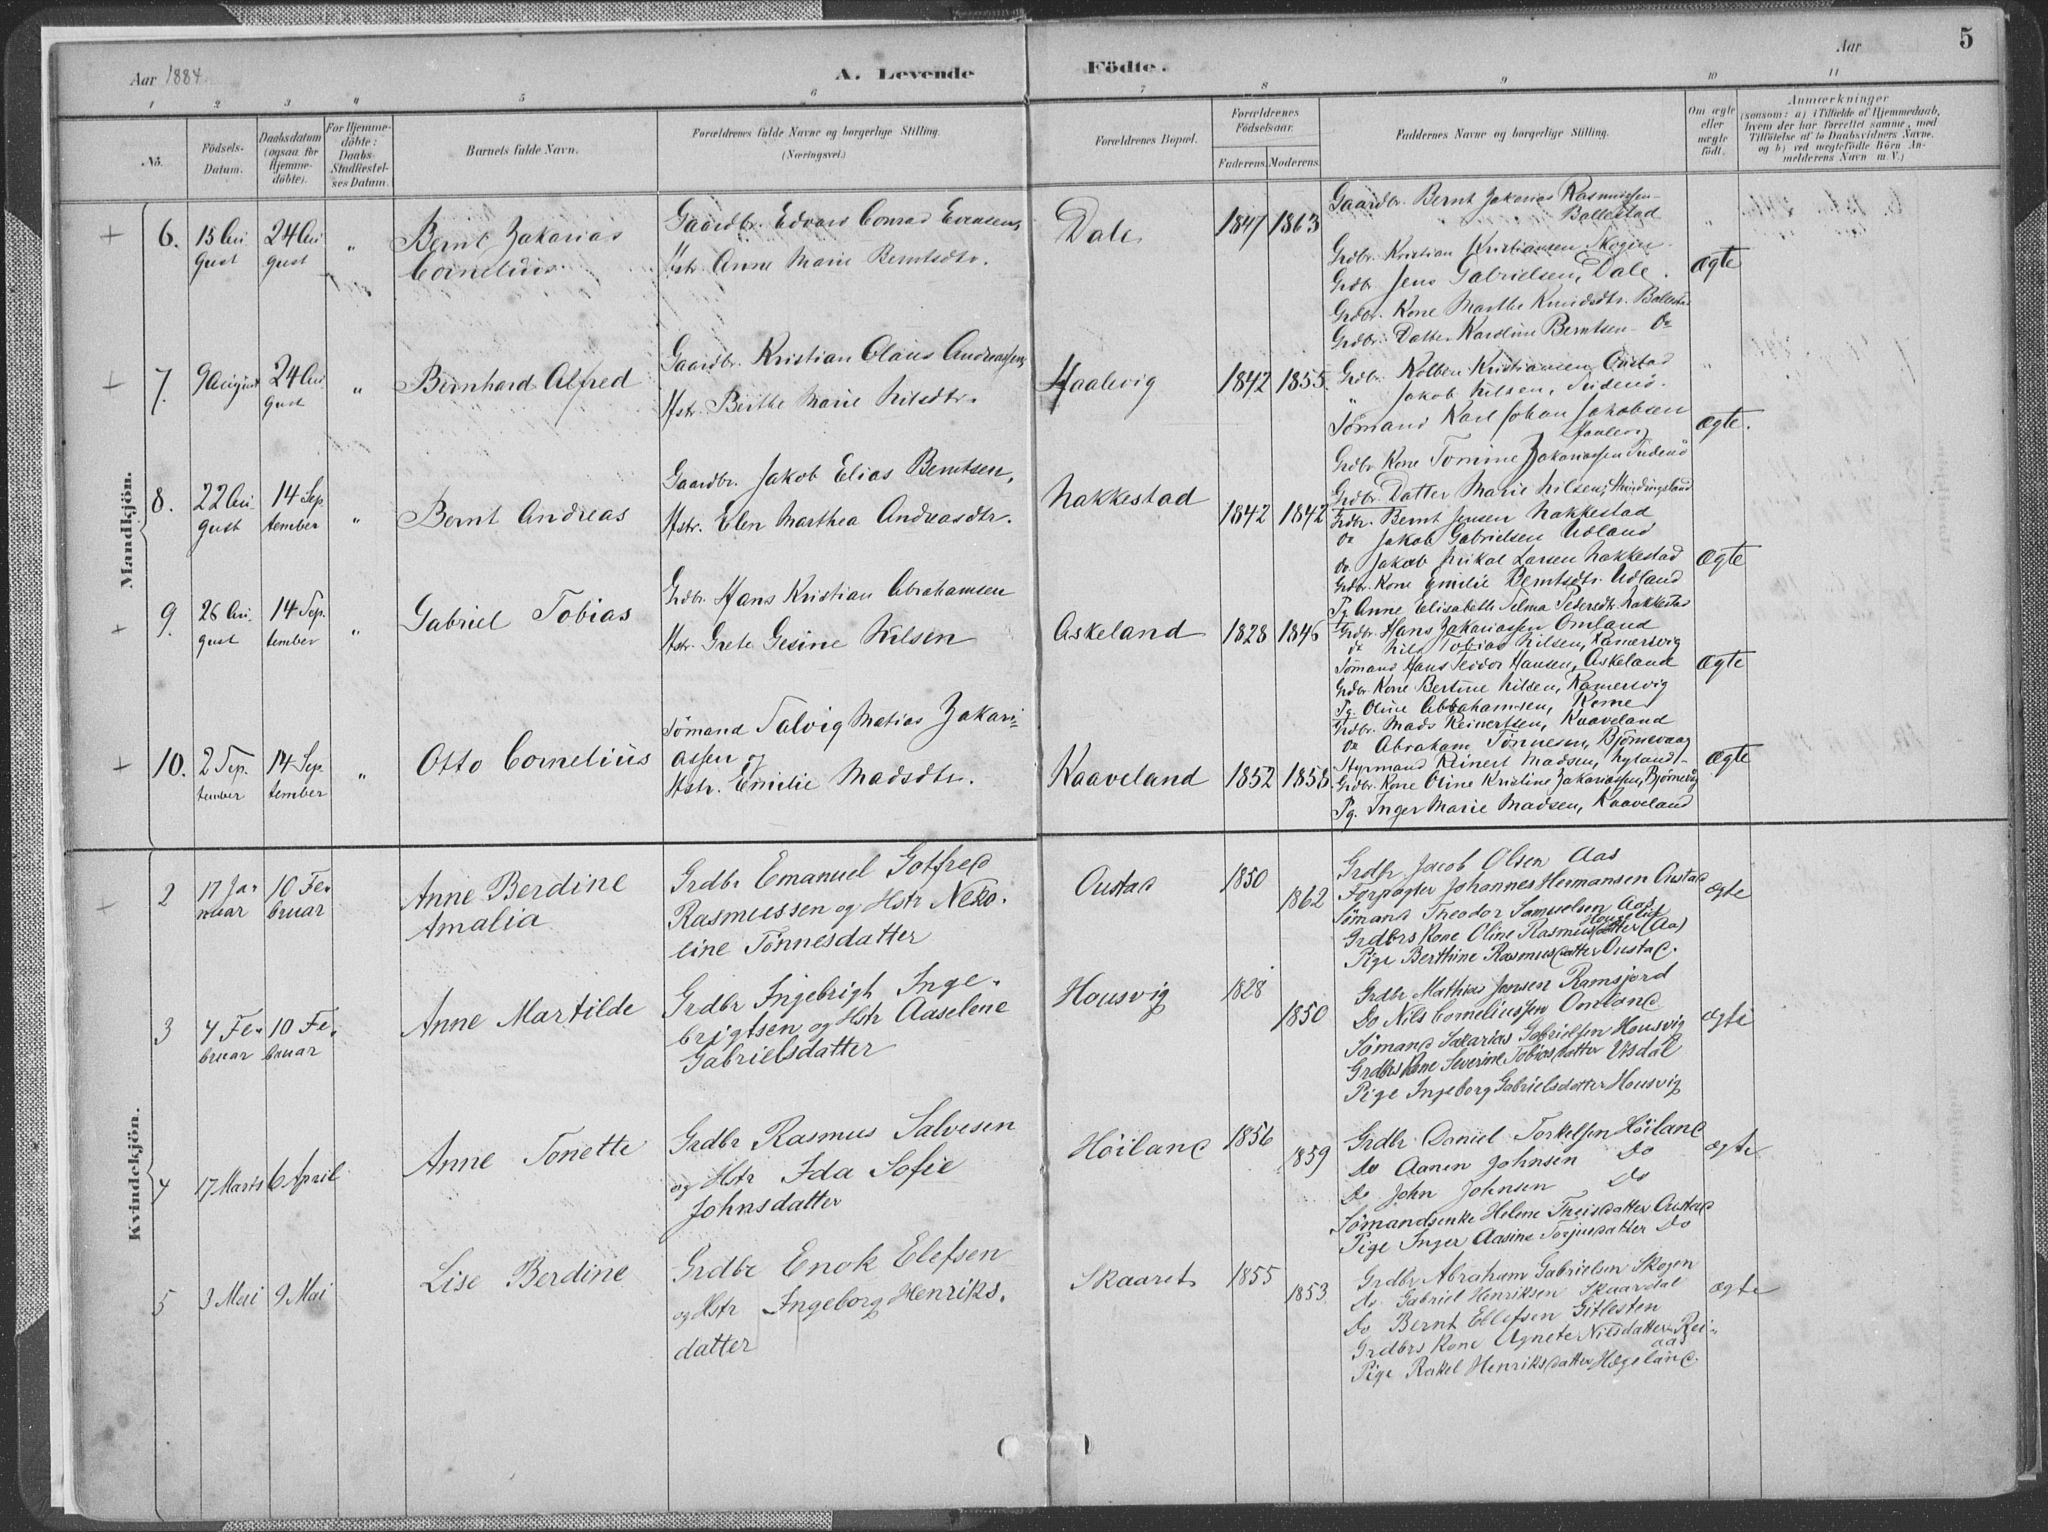 5
Aar 1884.
A. Levende Födte.
Aar
1 2 3 4 5 6 7 8 9 10 11
No.
Födsels-
Datum.
Daabsdatum
(ogsaa for
Hjemme-
döbte).
For Hjemme-
döbte:
Daabs-
Stadfæstel-
ses Datum.
Barnets fulde Navn.
Forældrenes fulde Navne og borgerlige Stilling.
(Næringsvei.)
Forældrenes Bopæl.
Forældrenes
Födselsaar.
Faderens. Moderens.
Faddernes Navne og borgerlige Stilling.
Om ægte
eller
uægte
födt.
Anmærkninger
(saasom: a) i Tilfælde af Hjemmedaab,
hvem der har forrettet samme, med
Tilföielse af to Daabsvidners Navne.
og b) ved uægtefödte Börn An-
melderens Navn m. V.)
Mandkjön.
+ 6. 15 Au
gust
24 Au
gust
"
Bernt Zakarias
Cornelius
Gaardbr. Edvard Conrad Evensen,
Hstr. Anne Marie Berntsdtr.
Dale
1847 1863
Gaardbr. Bernt Zakarias Rasmussen
Ballestad
Grdbr. Kristian Kristiansen Skogen
Grdbr. Jens Gabrielsen, Dale.
Grdbr. Kone Marthe Knudsdtr. Ballesta
Grdbr. Datter Karoline Berntsen Do
ægte
+ 7. 9 August
24 Au
gust
"
Bernhard Alfred
Gaardbr. Kristian Olaus Andreassen,
Hstr. Berthe Marie Nilsdtr.
Haalevig
1842 1855.
Grdbr. Kolben Kristiansen, Oustad
" Jakob Nilsen,
Sømand Karl Johan Jakobsen
Grdbr Kone Tomine Zakariassen
Grdbr. Datter Marie Nilsen,
ægte.
8. 22 Au
gust
14 Sep
tember
"
Bernt Andreas
Gaardbr. Jakob Elias Berntsen,
Hstr. Elen Marthea Andreasdtr.
Nakkestad
1842 1842
Grdbr. Bernt Jensen Nakkestad
do Jakob Gabrielsen Udland
do. Jakob Mikal Larsen Nakkestad
Grdbr. Kone Emilie Berntsdtr. Udland
Pg. Anne Elisabeth Telma Pedersdtr. Nakkestad
ægte
+ 9. 26 Au
gust
14 Sep.
tember
"
Gabriel Tobias
Grdbr. Hans Kristian Abrahamsen
Hstr. Grete Gesine Nilsen
Askeland
1828 1846
Grdbr. Hans Zakariassen Omland
do Nils Tobias Nilsen, Ramersvig
Sømand Hans Teodor Hansen, Askeland
Grdbr. Kone Bertine Nilsen, Ramersvig
Pg. Oline Abrahamsen, Rome
ægte
+ 10. 2 Sep.
tember
14 Sep
tember
"
Otto Cornelius
Sømand Talvig Matias Zakari-
assen og
Hstr. Emilie Madsdtr.
Kaaveland
1852 1858
Grdbr. Mads Reinertsen, Kaaveland
do Abraham Tønnesen, Bjørnevaag
Styrmand Reinert Madsen, Nyland
Grdbr. Kone Oline Kristine Zakariassen, Bjørnevåg
Pg. Inger Marie Madsen, Kaaveland
ægte
Kvindekjön.
2 17 Ja-
nuar
10 Fe-
bruar
Anne Berdine
Amalia
Grdbr Emanuel Gotfred
Rasmussen og Hstr Neko-
line Tönnesdatter
Oustad
1850
1862
Grdbr Jacob Olsen Aas
Forpagter Johannes Hermansen Oustad
Sömand Theodor Samuelsen Aas
Grdbrs Kone Oline Rasmusdatter (Aa)
Pige Berthine Rasmusdatter Oustad.
ægte
3 4 Fe-
bruar
10 Fe-
bruar
Anne Martilde
Grdbr Ingebrigh Inge-
brigtsen og Hstr Aaselene
Gabrielsdatter
Housvig
1828
1850
Grdbr Mathias Jensen Ramsjord
Do Nils Corneliussen Omland
Sömand Sakarias Gabrielsen Housvig
Grdbrs Kone Severine Tobiasdatter Udsdal
Pige Ingeborg Gabrielsdatter Housvig
ægte
4 17 Marts 6 April
Anne Tonette
Grdbr Rasmus Salvesen
og Hstr Ida Sofie
Johnsdatter
Höiland
1856
1859
Grdbr Daniel Torkelsen Höiland
Do Aanen Johnsen Do
Do John Johnsen Do
Sömandsenke Helene Theisdatter Oustad
Pige Inger Aasine Torjusdatter Do
ægte
5 3 Mai 9 Mai
Lise Berdine
Grdbr Enok Elefsen
og Hstr Ingeborg Henriks-
datter
Skaaret
1855
1853
Grdbr Abraham Gabrielsen Skogen
do. Gabriel Henriksen Skaardal
Do Bernt Ellefsen Gitlesten
Grdbrs Kone Agnete Nilsdatter Rei-
aas
Pige Rakel Henriksdatter Hægeland.
ægte